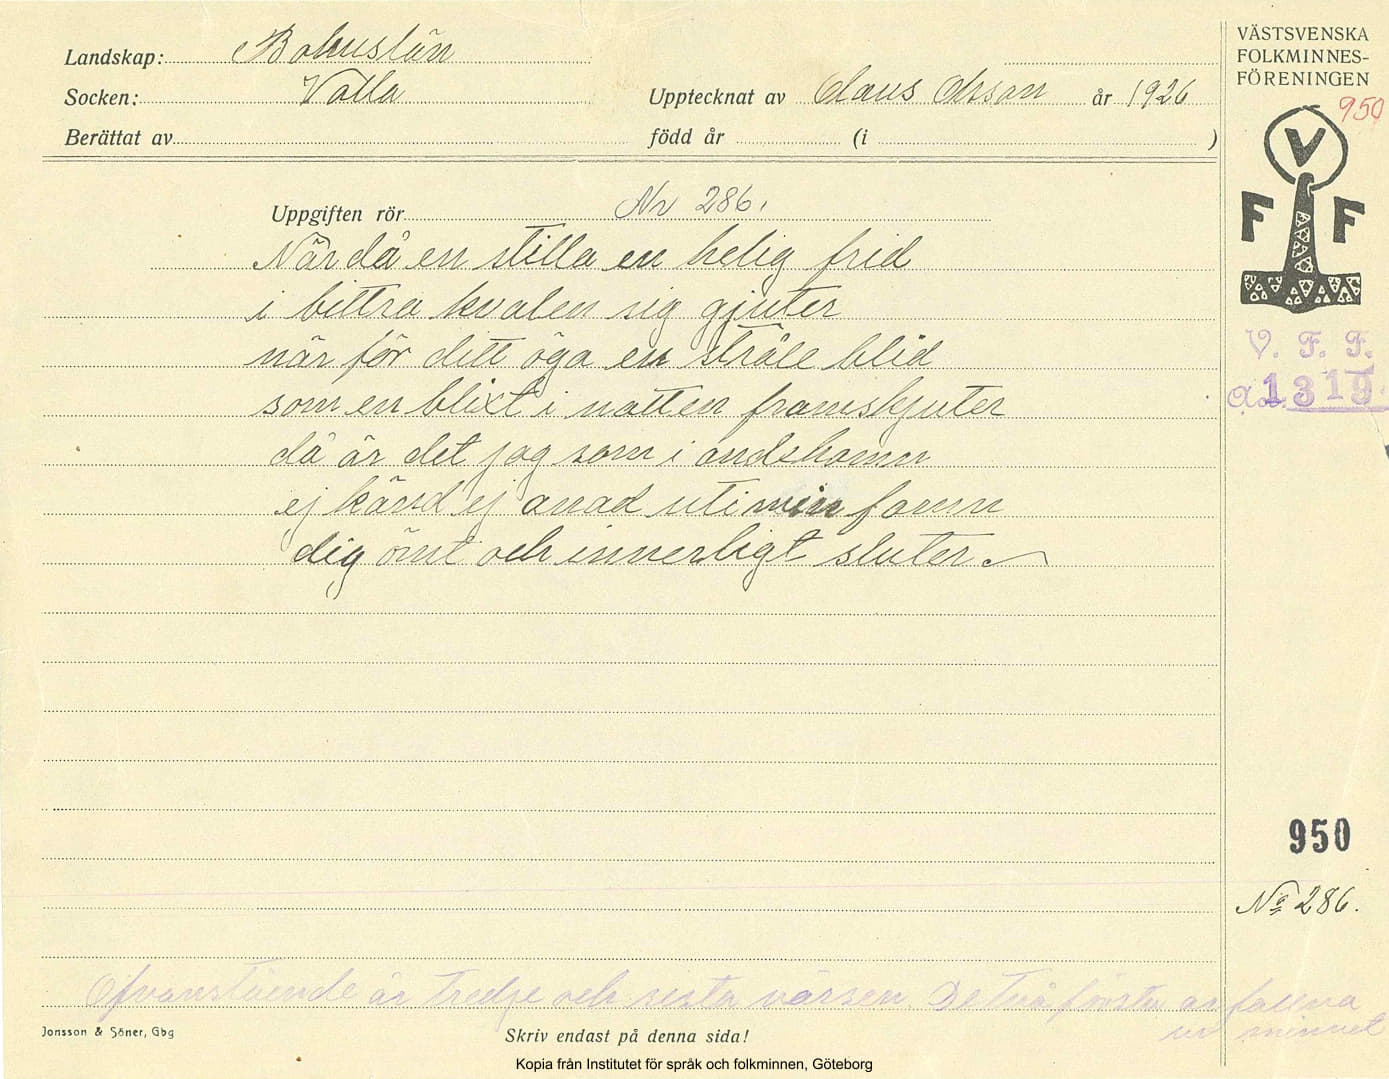 Landskap: Bohuslän
Socken: Valla
Upptecknat av Claus Olsson år 1926
Berättat av
född år (i )
VÄSTSVENSKA
FOLKMINNES-
FÖRENINGEN
950
V
F F
V. F. F.
1319
Uppgiften rör Nr 286.
När då en stilla en helig frid
i bittra kvalen sig gjuter
när för ditt öga en stråle blid
som en blixt i natten framskjuter
då är det jag som i andehamn
ej känd ej anad uti min famn
dig ömt och innerligt sluter.
950
No 286.
Ofvanstående är tredje och sista värsen. De två första är fallna
ur minnet
Jonsson & Söner, Gbg
Skriv endast på denna sida!
Kopia från Institutet för språk och folkminnen, Göteborg